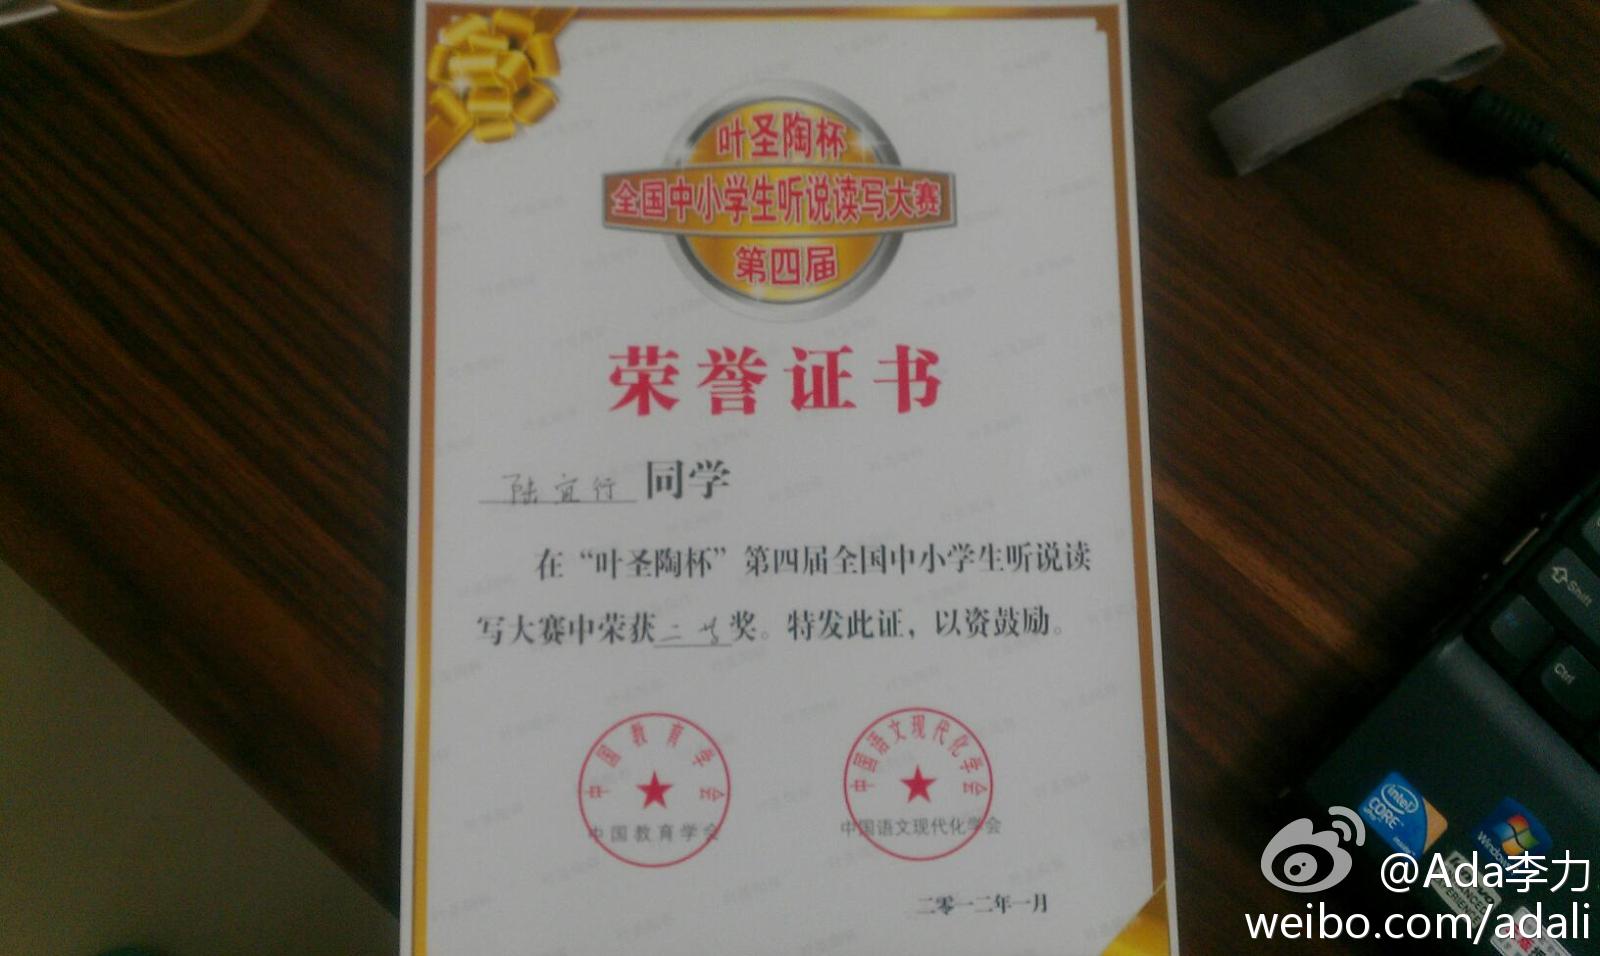 叶圣陶杯
全国中小学生听说读写大赛
第四届
荣誉证书
陆宜行 同学
在“叶圣陶杯”第四届全国中小学生听说读
写大赛中荣获二等奖。特发此证，以资鼓励。
中国教育学会
中国教育学会
中国语文现代化学会
中国语文现代化学会
二零一二年一月
Shift
Ctrl
intel
CORE
Windows
@Ada李力
weibo.com/adali